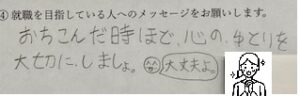 ④ 就職を目指している人へのメッセージをお願いします。
おちこんだ時ほど、心のゆとりを
大切に、しましょ。大丈夫よ。